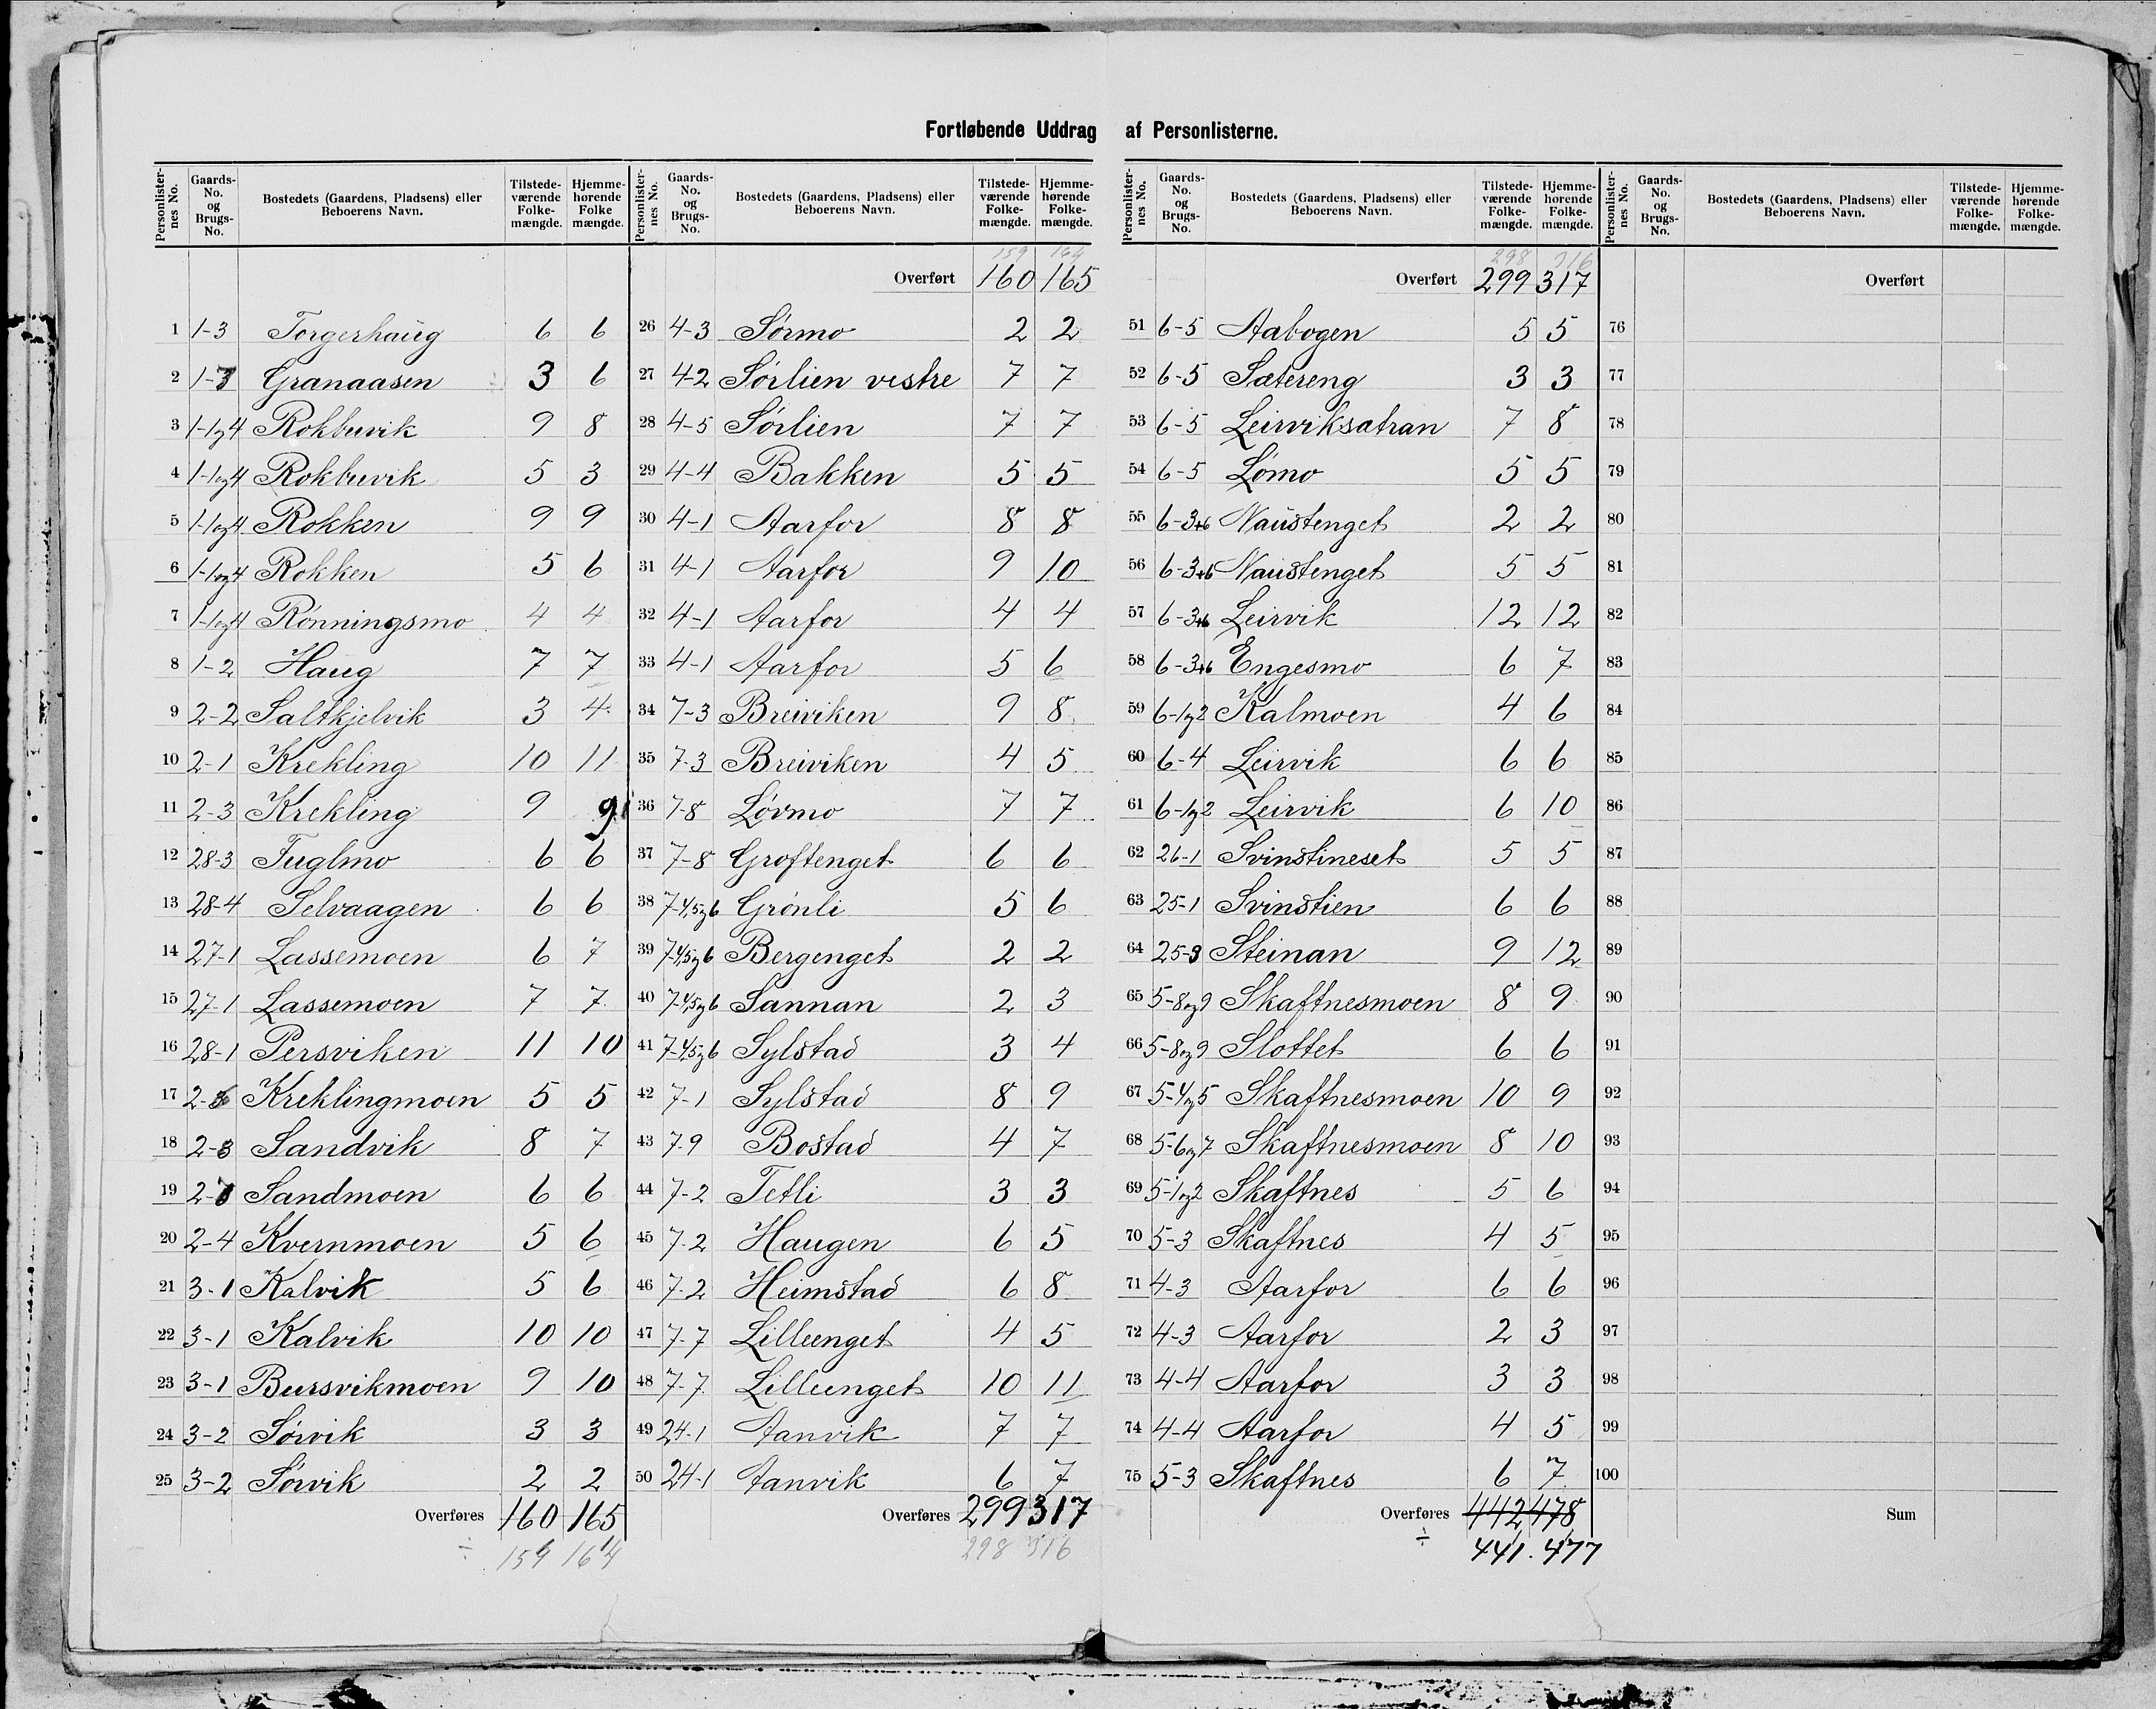 Fortløbende Uddrag af Personlisterne.
Personlister-nes No. Gaards-No. og Brugs-No. Bostedets (Gaardens, Pladsens) eller Beboerens Navn. Tilstede-værende Folke-mængde. Hjemme-hørende Folke mængde.
1 1-3 Torgerhaug 6 6
2 1-3 Granaasen 3 6
3 1-1og4 Rokbuvik 9 8
4 1-1og4 Rokbuvik 5 3
5 1-1og4 Rokken 9 9
6 1-1og4 Rokken 5 6
7 1-1og4 Rønningsmo 4 4
8 1-2 Haug 7 7
9 2-2 Saltkjelvik 3 4
10 2-1 Krekling 10 11
11 2-3 Krekling 9 9
12 28-3 Fuglmo 6 6
13 28-4 Selvaagen 6 6
14 27-1 Lassemoen 6 7
15 27-1 Lassemoen 7 7
16 28-1 Persviken 11 10
17 2-3 Kreklingmoen 5 5
18 2-3 Sandvik 8 7
19 2- Sandmoen 6 6
20 2-4 Kvernmoen 5 6
21 3-1 Kalvik 5 6
22 3-1 Kalvik 10 10
23 3-1 Bursvikmoen 9 10
24 3-2 Sørvik 3 3
25 3-2 Sørvik 2 2
Overføres 160 165
÷ 159 164
Personlister-nes No. Gaards-No. og Brugs-No. Bostedets (Gaardens, Pladsens) eller Beboerens Navn. Tilstede-værende Folke-mængde. Hjemme-hørende Folke-mængde.
159 164
Overført 160 165
26 4-3 Sørmo 2 2
27 4-2 Sørlien vestre 7 7
28 4-5 Sørlien 7 7
29 4-4 Bakken 5 5
30 4-1 Aarfor 8 8
31 4-1 Aarfor 9 10
32 4-1 Aarfor 4 4
33 4-1 Aarfor 5 6
34 7-3 Breiviken 9 8
35 7-3 Breiviken 4 5
36 7-8 Løvmo 7 7
37 7-8 Groftenget 6 6
38 7-4,5og6 Grønli 5 6
39 7-4,5og6 Bergenget 2 2
40 7-4,5og6 Sannan 2 3
41 7-4,5og6 Sylstad 3 4
42 7-1 Sylstad 8 9
43 7-9 Bostad 4 7
44 7-2 Tetli 3 3
45 7-2 Haugen 6 5
46 7-2 Heimstad 6 8
47 7-7 Lilleenget 4 5
48 7-7 Lilleenget 10 11
49 24-1 Aanvik 7 7
50 24-1 Aanvik 6 7
Overføres 299 317
298 316
Personlister-nes No. Gaards-No. og Brugs-No. Bostedets (Gaardens, Pladsens) eller Beboerens Navn. Tilstede-værende Folke-mængde. Hjemme-hørende Folke-mængde.
298 316
Overført 299 317
51 6-5 Aabogen 5 5
52 6-5 Sætereng 3 3
53 6-5 Leirviksætran 7 8
54 6-5 Lømo 5 5
55 6-3+6 Naustenget 2 2
56 6-3+6 Naustenget 5 5
57 6-3+6 Leirvik 12 12
58 6-3+6 Engesmo 6 7
59 6-1og2 Kalmoen 4 6
60 6-4 Leirvik 6 6
61 6-1og2 Leirvik 6 10
62 26-1 Svinstineset 5 5
63 25-1 Svinstien 6 6
64 25-3 Steinan 9 12
65 5-8og9 Skaftnesmoen 8 9
66 5-8og9 Slottet 6 6
67 5-4og5 Skaftnesmoen 10 9
68 5-6og7 Skaftnesmoen 8 10
69 5-1og2 Skaftnes 5 6
70 5-3 Skaftnes 4 5
71 4-3 Aarfor 6 6
72 4-3 Aarfor 2 3
73 4-4 Aarfor 3 3
74 4-4 Aarfor 4 5
75 5-3 Skaftnes 6 7
Overføres 442 478
÷ 441. 477
Personlister-nes No. Gaards-No. og Brugs-No. Bostedets (Gaardens, Pladsens) eller Beboerens Navn. Tilstede-værende Folke-mængde. Hjemme-hørende Folke-mængde.
Overført
76
77
78
79
80
81
82
83
84
85
86
87
88
89
90
91
92
93
94
95
96
97
98
99
100
Sum